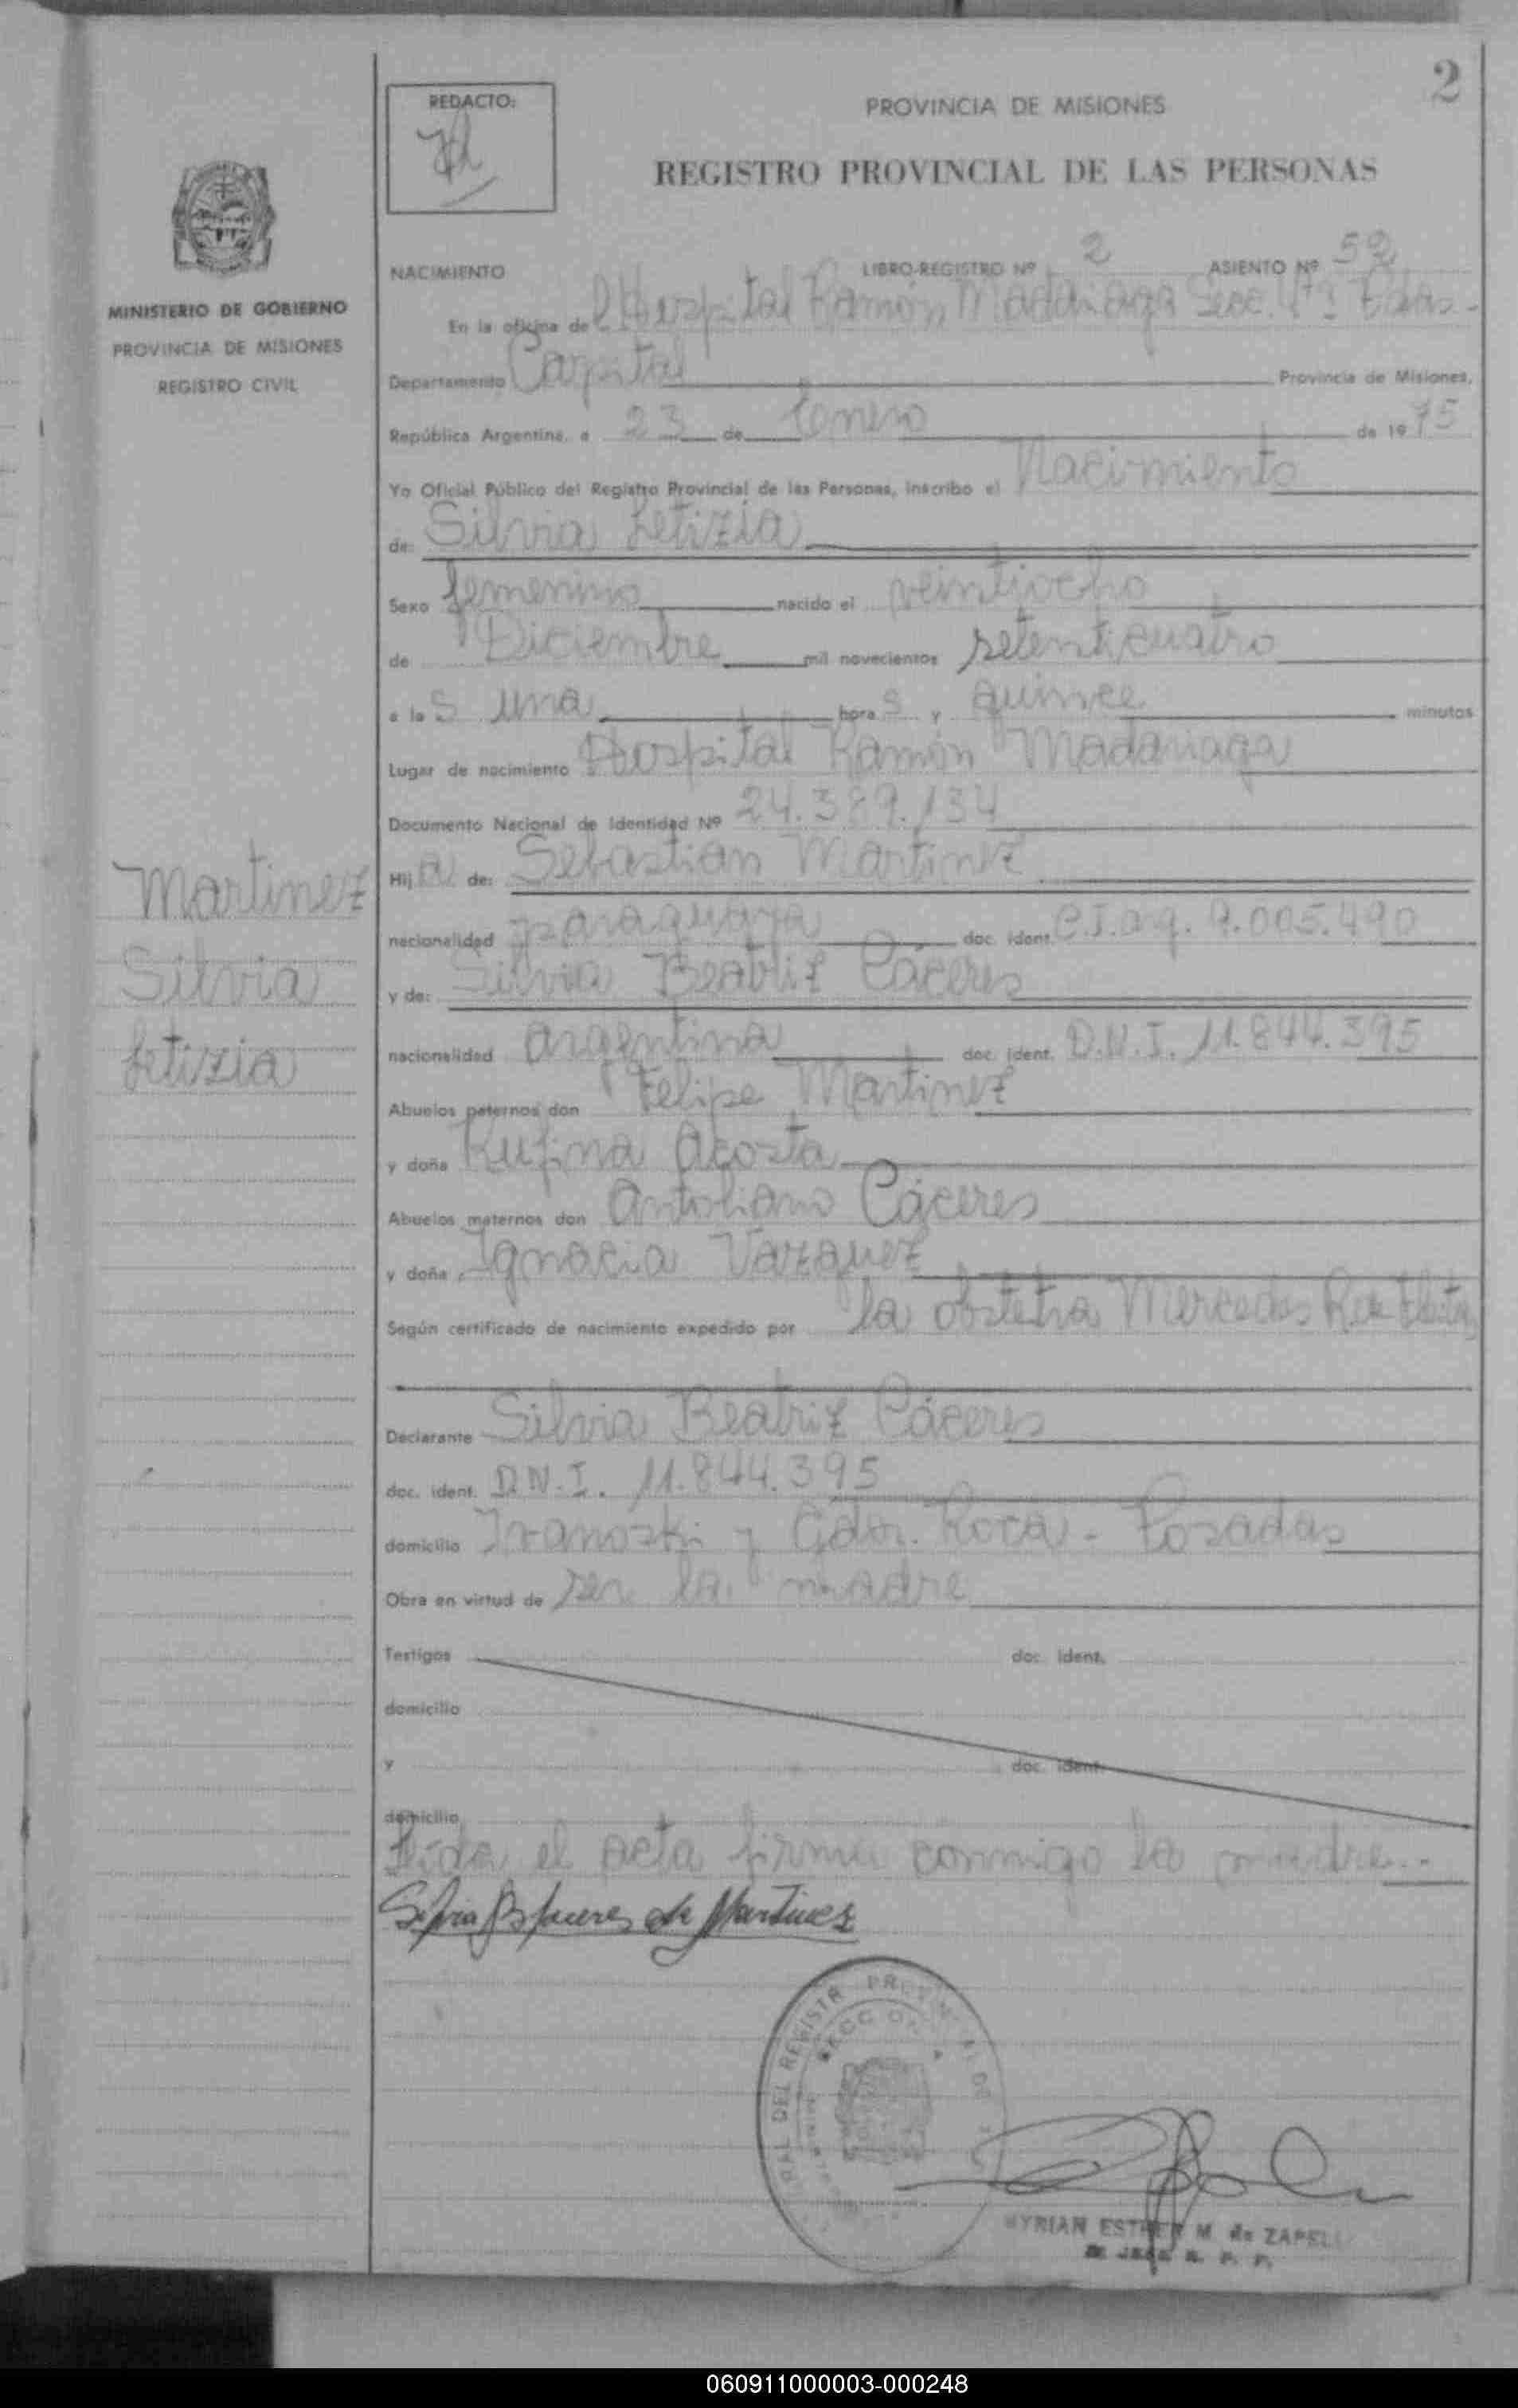 2
REDACTO:
PROVINCIA DE MISIONES
REGISTRO PROVINCIAL DE LAS PERSONAS
MINISTERIO DE GOBIERNO
PROVINCIA DE MISIONES
REGISTRO CIVIL
NACIMIENTO LIBRO-REGISTRO Nº 2 ASIENTO Nº 52
En la oficina de Hospital Ramón Madariaga Secc. 4ta Pdas-
Departamento Capital Provincia de Misiones,
República Argentina, a 23 de Enero de 1975
Yo Oficial Público del Registro Provincial de las Personas, inscribo el Nacimiento
de: Silvia Letizia
Sexo femenino nacido el veintiocho
de Diciembre mil novecientos setenticuatro
a las una horas y quince minutos
Lugar de nacimiento Hospital Ramón Madariaga
Documento Nacional de Identidad Nº 24.389.134
Hija de: Sebastian Martinez
nacionalidad paraguaya doc. ident. C.I.arg. 9.005.490
y de: Silvia Beatriz Cáceres
nacionalidad argentina doc. ident. D.N.I. 11.844.395
Abuelos paternos don Felipe Martinez
y doña Rufina Acosta
Abuelos maternos don Antoliano Cáceres
y doña Ignacia Vazquez
Según certificado de nacimiento expedido por la obstetra Mercedes R de
Declarante Silvia Beatriz Cáceres
doc. ident. D.N.I. 11.844.395
domicilio Ivanoski y Gdor. Roca - Posadas
Obra en virtud de ser la madre
Testigos doc. ident.
domicilio
y doc. ident.
domicilio
Leída el acta firma conmigo la madre.-
Silvia B Caceres de Martinez
Martinez
Silvia
Letizia
MYRIAN ESTHER M. de ZAPELLI
R. P. P.
060911000003-000248